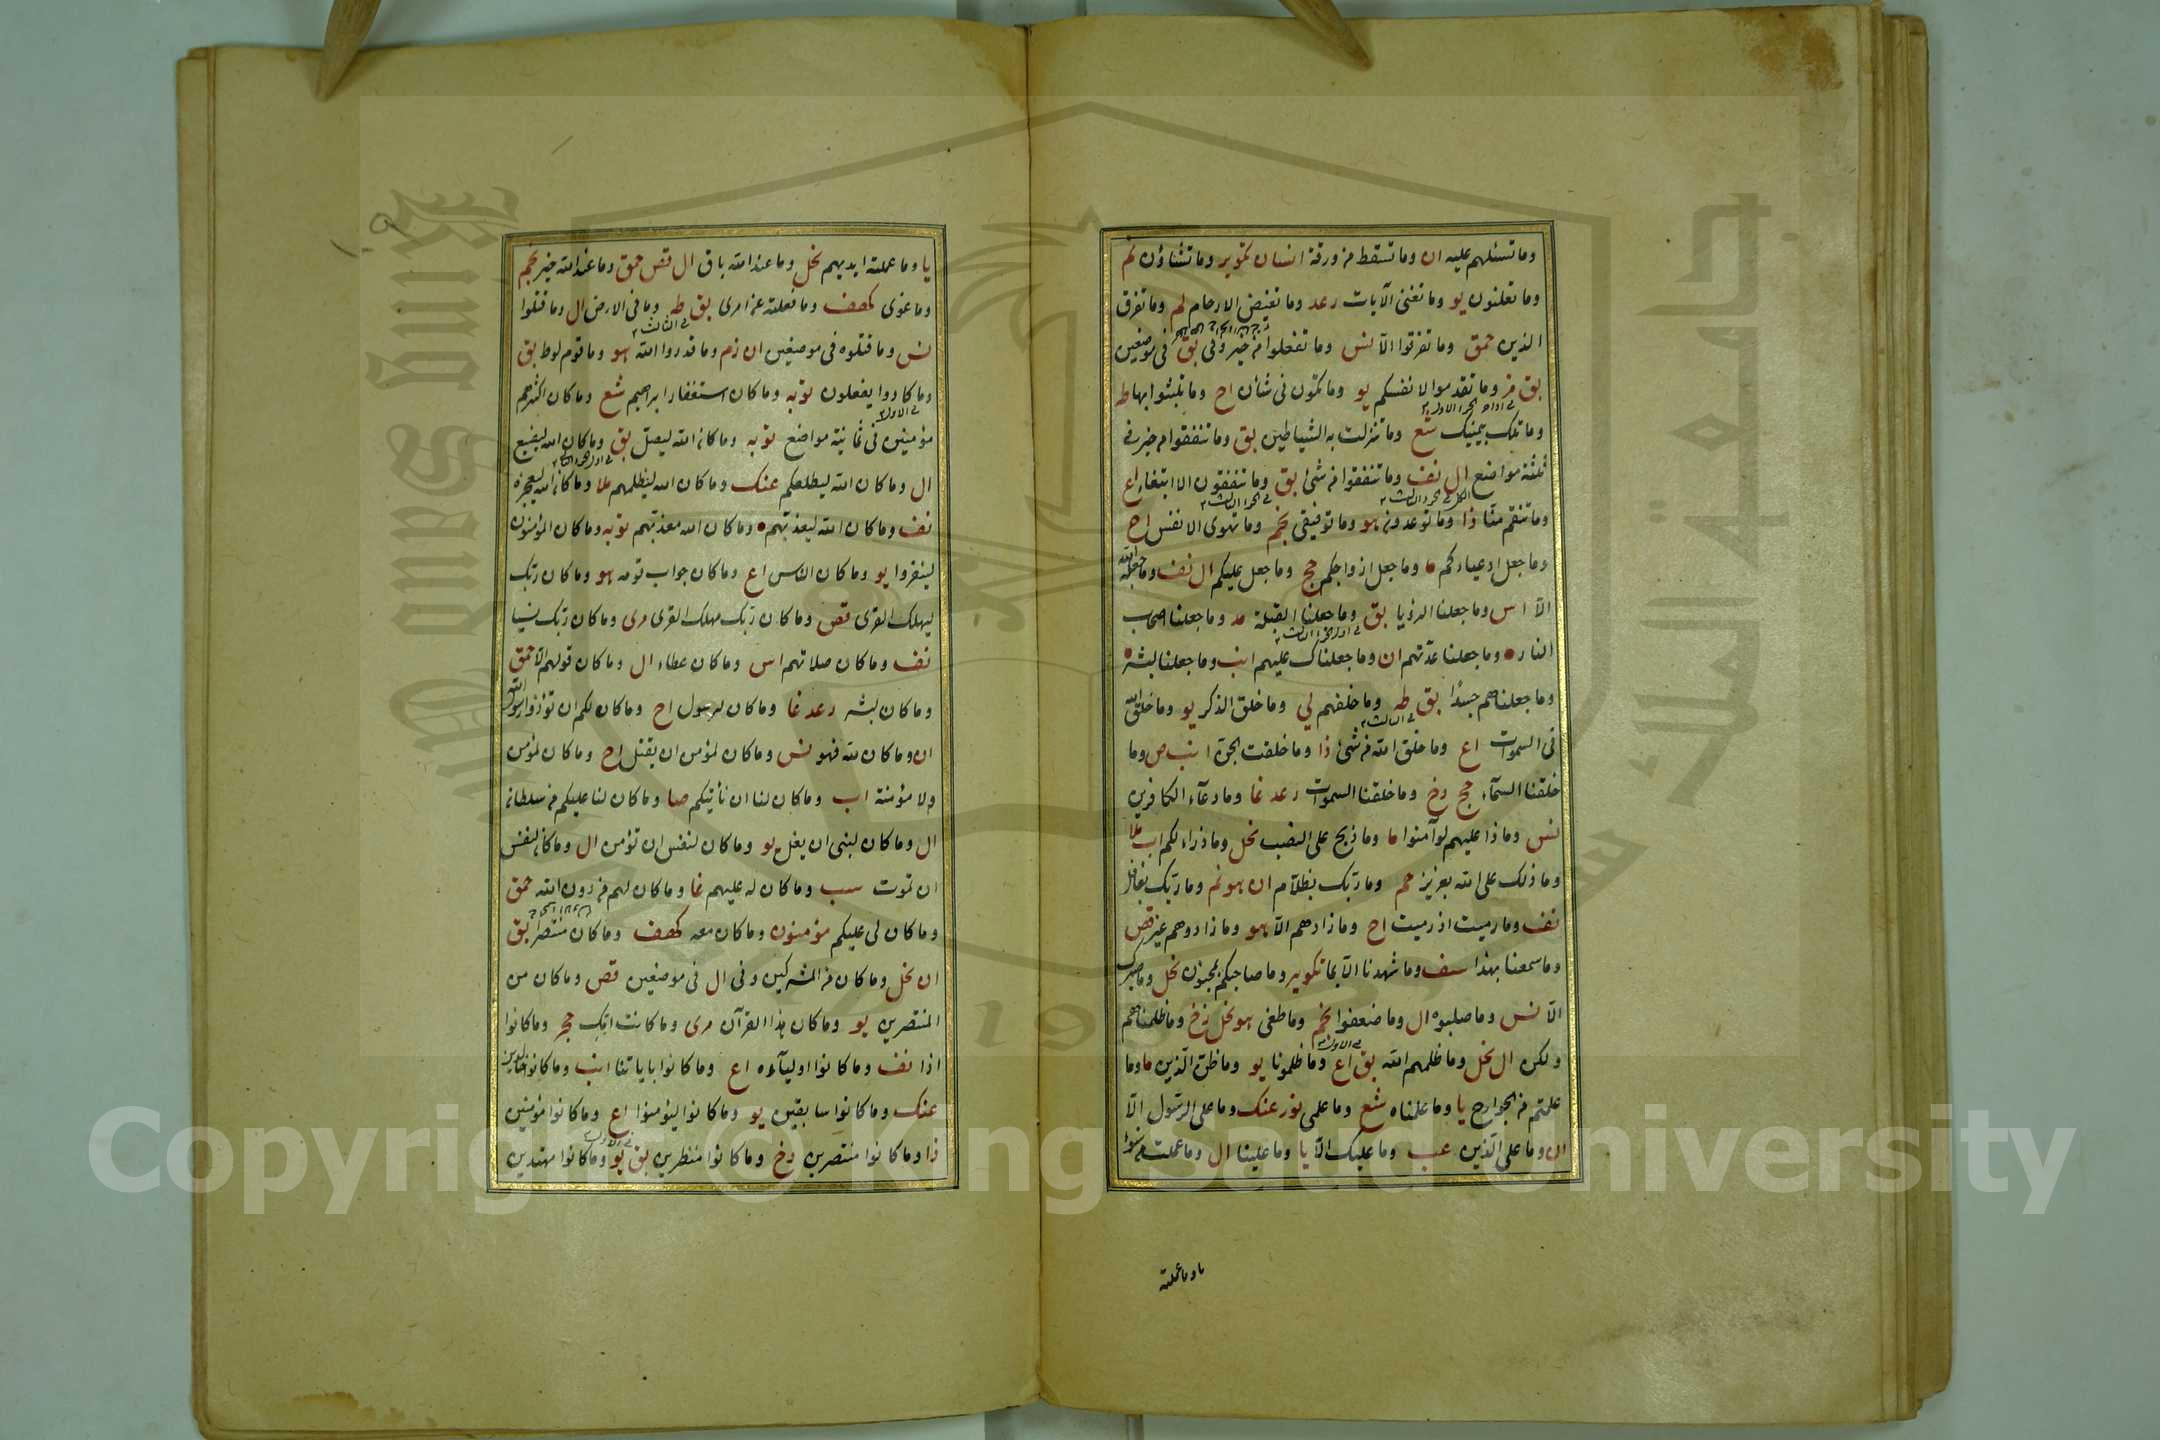 وما تسئلهم عليه ان وما تسقط من ورقة انسان تكوير وما تشاؤن لم
وما تعلنون يو وما تغنى الآيات رعد وما تغيض الارحام لم وما تفرق
الذين حمق وما تفرقوا الا نس وما تفعلوا من خير وفى بق فى موضعين
بق مز وما تقدموا لانفسكم يو وما تكون فى شأن اح وما تلبثوا بها طه
وما تلك بيمينك شع وما تنزلت به الشياطين بق وما تنفقوا من خير فى
ثلثة مواضع ال نف وما تنفقوا من شئ بق وما تنفقون الا ابتغاء اع
وما تنقم منا ذا وما توعدون هو وما توفيقى نجم وما تهوى الانفس اح
وما جعل ادعياءكم ما وما جعل ازواجكم حج وما جعل عليكم ال نف وما جعله الله
الا اس وما جعلنا الرؤيا بق وما جعلنا القبلة مد وما جعلنا اصحاب
النار وما جعلنا عدتهم ان وما جعلناك عليهم انب وما جعلنا لبشر
وما جعلناهم جسدا بق طه وما خلفهم لي وما خلق الذكر يو وما خلق الله
فى السموات اع وما خلق الله من شئ ذا وما خلقت الجن انب ص وما
خلقنا السماء حج دخ وما خلقنا السموات رعد غا وما دعاء الكافرين
نس وما ذا عليهم لو آمنوا ما وما ذبح على النصب نحل وما ذراء لكم اب ملا
وما ذلك على الله بعزيز حم وما ربك بظلام ان هو نم وما ربك بغافل
نف وما رميت اذ رميت اح وما زادهم الا هو وما زادوهم غير قص
وما سمعنا بهذا سف وما شهدنا الا بما تكوير وما صاحبكم بمجنون نحل وما صبرك
الا نس وما صلبوه ال وما ضعفوا نجم وما طغى هو نحل زخ وما ظلمناهم
ولكن ال نحل وما ظلمهم الله بق اع وما ظلمونا يو وما ظن الذين ما وما
علمتم من الجوارح يا وما علمناه شع وما علمى نور عنك وما على الرسول الا
ان وما على الذين عب وما عليك الا يا وما علينا ال وما عملت من سوء
يا وما عملته
يا وما عملته ايديهم نحل وما عند الله باق ال قص حمق وما عند الله خير نجم
وما غوى كهف وما فعلته عن امرى بق طه وما فى الارض ال وما قتلوا
نس وما قتلوه فى موضعين ان زم وما قدروا الله هو وما قوم لوط بق
وما كادوا يفعلون توبه وما كان استغفار ابراهيم شع وما كان اكثرهم
مؤمنين فى ثمانية مواضع توبه وما كان الله ليضل بق وما كان الله ليضيع
ال وما كان الله ليطلعكم عنك وما كان الله ليظلمهم ملا وما كان الله ليعجزه
نف وما كان الله ليعذبهم وما كان الله معذبهم توبه وما كان المؤمنون
لينفروا يو وما كان الناس اع وما كان جواب قومه هو وما كان ربك
ليهلك القرى قص وما كان ربك مهلك القرى مرى وما كان ربك نسيا
نف وما كان صلاتهم اس وما كان عطاء ال وما كان قولهم الا حمق
وما كان لبشر رعد غا وما كان لرسول اح وما كان لكم ان تؤذوا رسول الله
ان وما كان لله فهو نس وما كان لمؤمن ان يقتل اح وما كان لمؤمن
ولا مؤمنة اب وما كان لنا ان نأتيكم صا وما كان لنا عليكم من سلطان
ال وما كان لنبى ان يغل يو وما كان لنفس ان تؤمن ال وما كان لنفس
ان تموت سب وما كان له عليهم غا وما كان لهم من دون الله حمق
وما كان لى عليكم مؤمنون وما كان معه كهف وما كان منتصرا بق
ان نحل وما كان من المشركين وفى ال فى موضعين قص وما كان من
المنتصرين يو وما كان هذا القرآن مرى وما كانت امك حجر وما كانوا
اذا نف وما كانوا اولياءه اع وما كانوا بآياتنا انب وما كانوا خالدين
عنك وما كانوا سابقين يو وما كانوا ليؤمنوا اع وما كانوا مؤمنين
ذا وما كانوا منتصرين دخ وما كانوا منظرين بق يو وما كانوا مهتدين
Copyright © King Saud University